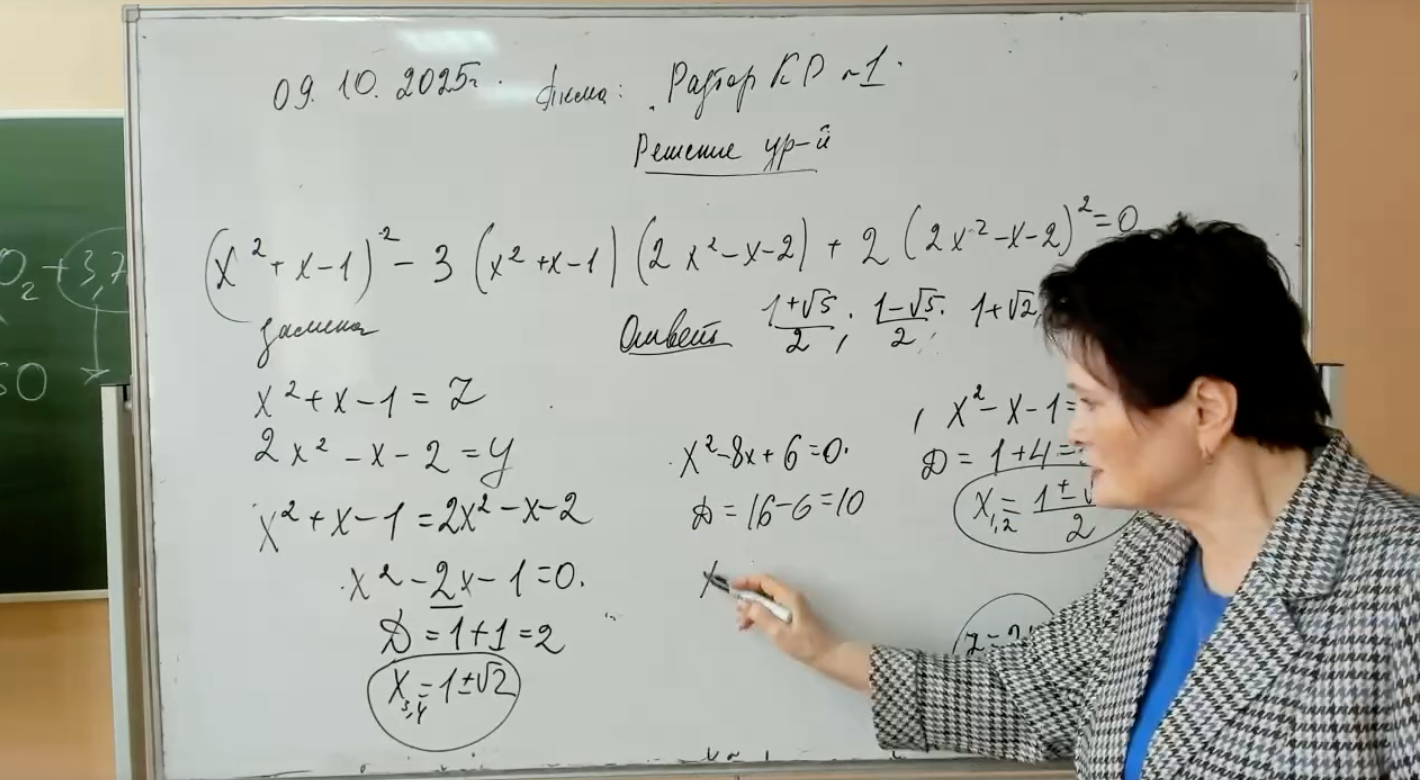 09.10.2025г. Тема: Разбор КР №1.
Решение ур-й
(x² + x - 1)² - 3 (x² + x - 1) (2x² - x - 2) + 2 (2x² - x - 2)² = 0
замена
Ответ 1+√5/2; 1-√5/2; 1+√2,
x² + x - 1 = z
2x² - x - 2 = y
x² + x - 1 = 2x² - x - 2
x² - 2x - 1 = 0.
D = 1 + 1 = 2
x₃,₄ = 1 ± √2
x² - 8x + 6 = 0.
D = 16 - 6 = 10
x
x² - x - 1 =
D = 1 + 4 =
x₁,₂ = 1 ± √ / 2
O₂ + 3,7
50